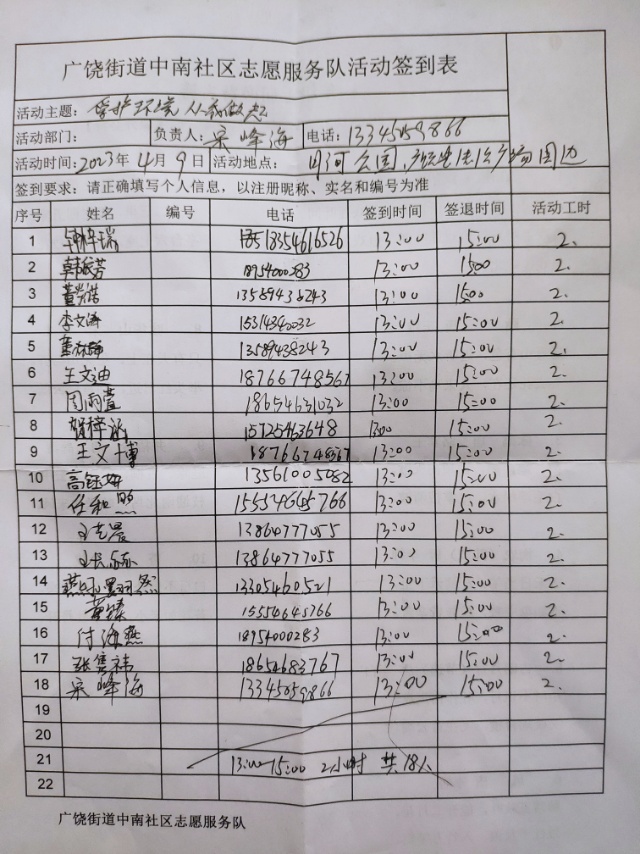 广饶街道中南社区志愿服务队活动签到表
活动主题：爱护环境 从我做起
活动部门： 负责人：宋峰海 电话：13345059866
活动时间：2023年4月9日 活动地点：月河公园，广场周边
签到要求：请正确填写个人信息，以注册昵称、实名和编号为准
序号 姓名 编号 电话 签到时间 签退时间 活动工时
1 18354616526 13:00 15:00 2.
2 18954000283 13:00 1500 2.
3 13589438243 13:00 1500 2.
4 李文涛 15314340032 13:00 15:00 2.
5 13589438243 13:00 15:00 2.
6 王文迪 18766748567 13:00 15:00 2.
7 周雨萱 18654631032 13:00 15:00 2.
8 15725463648 1300 15:00 2.
9 王文博 18766748567 13:00 15:00 2.
10 13561005082 13:00 15:00 2.
11 任和 15554645766 13:00 15:00 2.
12 13864777055 13:00 15:00 2.
13 13864777055 13:00 15:00 2.
14 13305460521 13:00 15:00 2.
15 15554645766 13:00 15:00 2.
16 付海燕 18954000283 13:00 15:00 2.
17 张隽祎 18654683767 13:00 15:00 2.
18 宋峰海 13345059866 13:00 15:00 2.
19
20
21 13:00-15:00 2小时 共18人
22
广饶街道中南社区志愿服务队